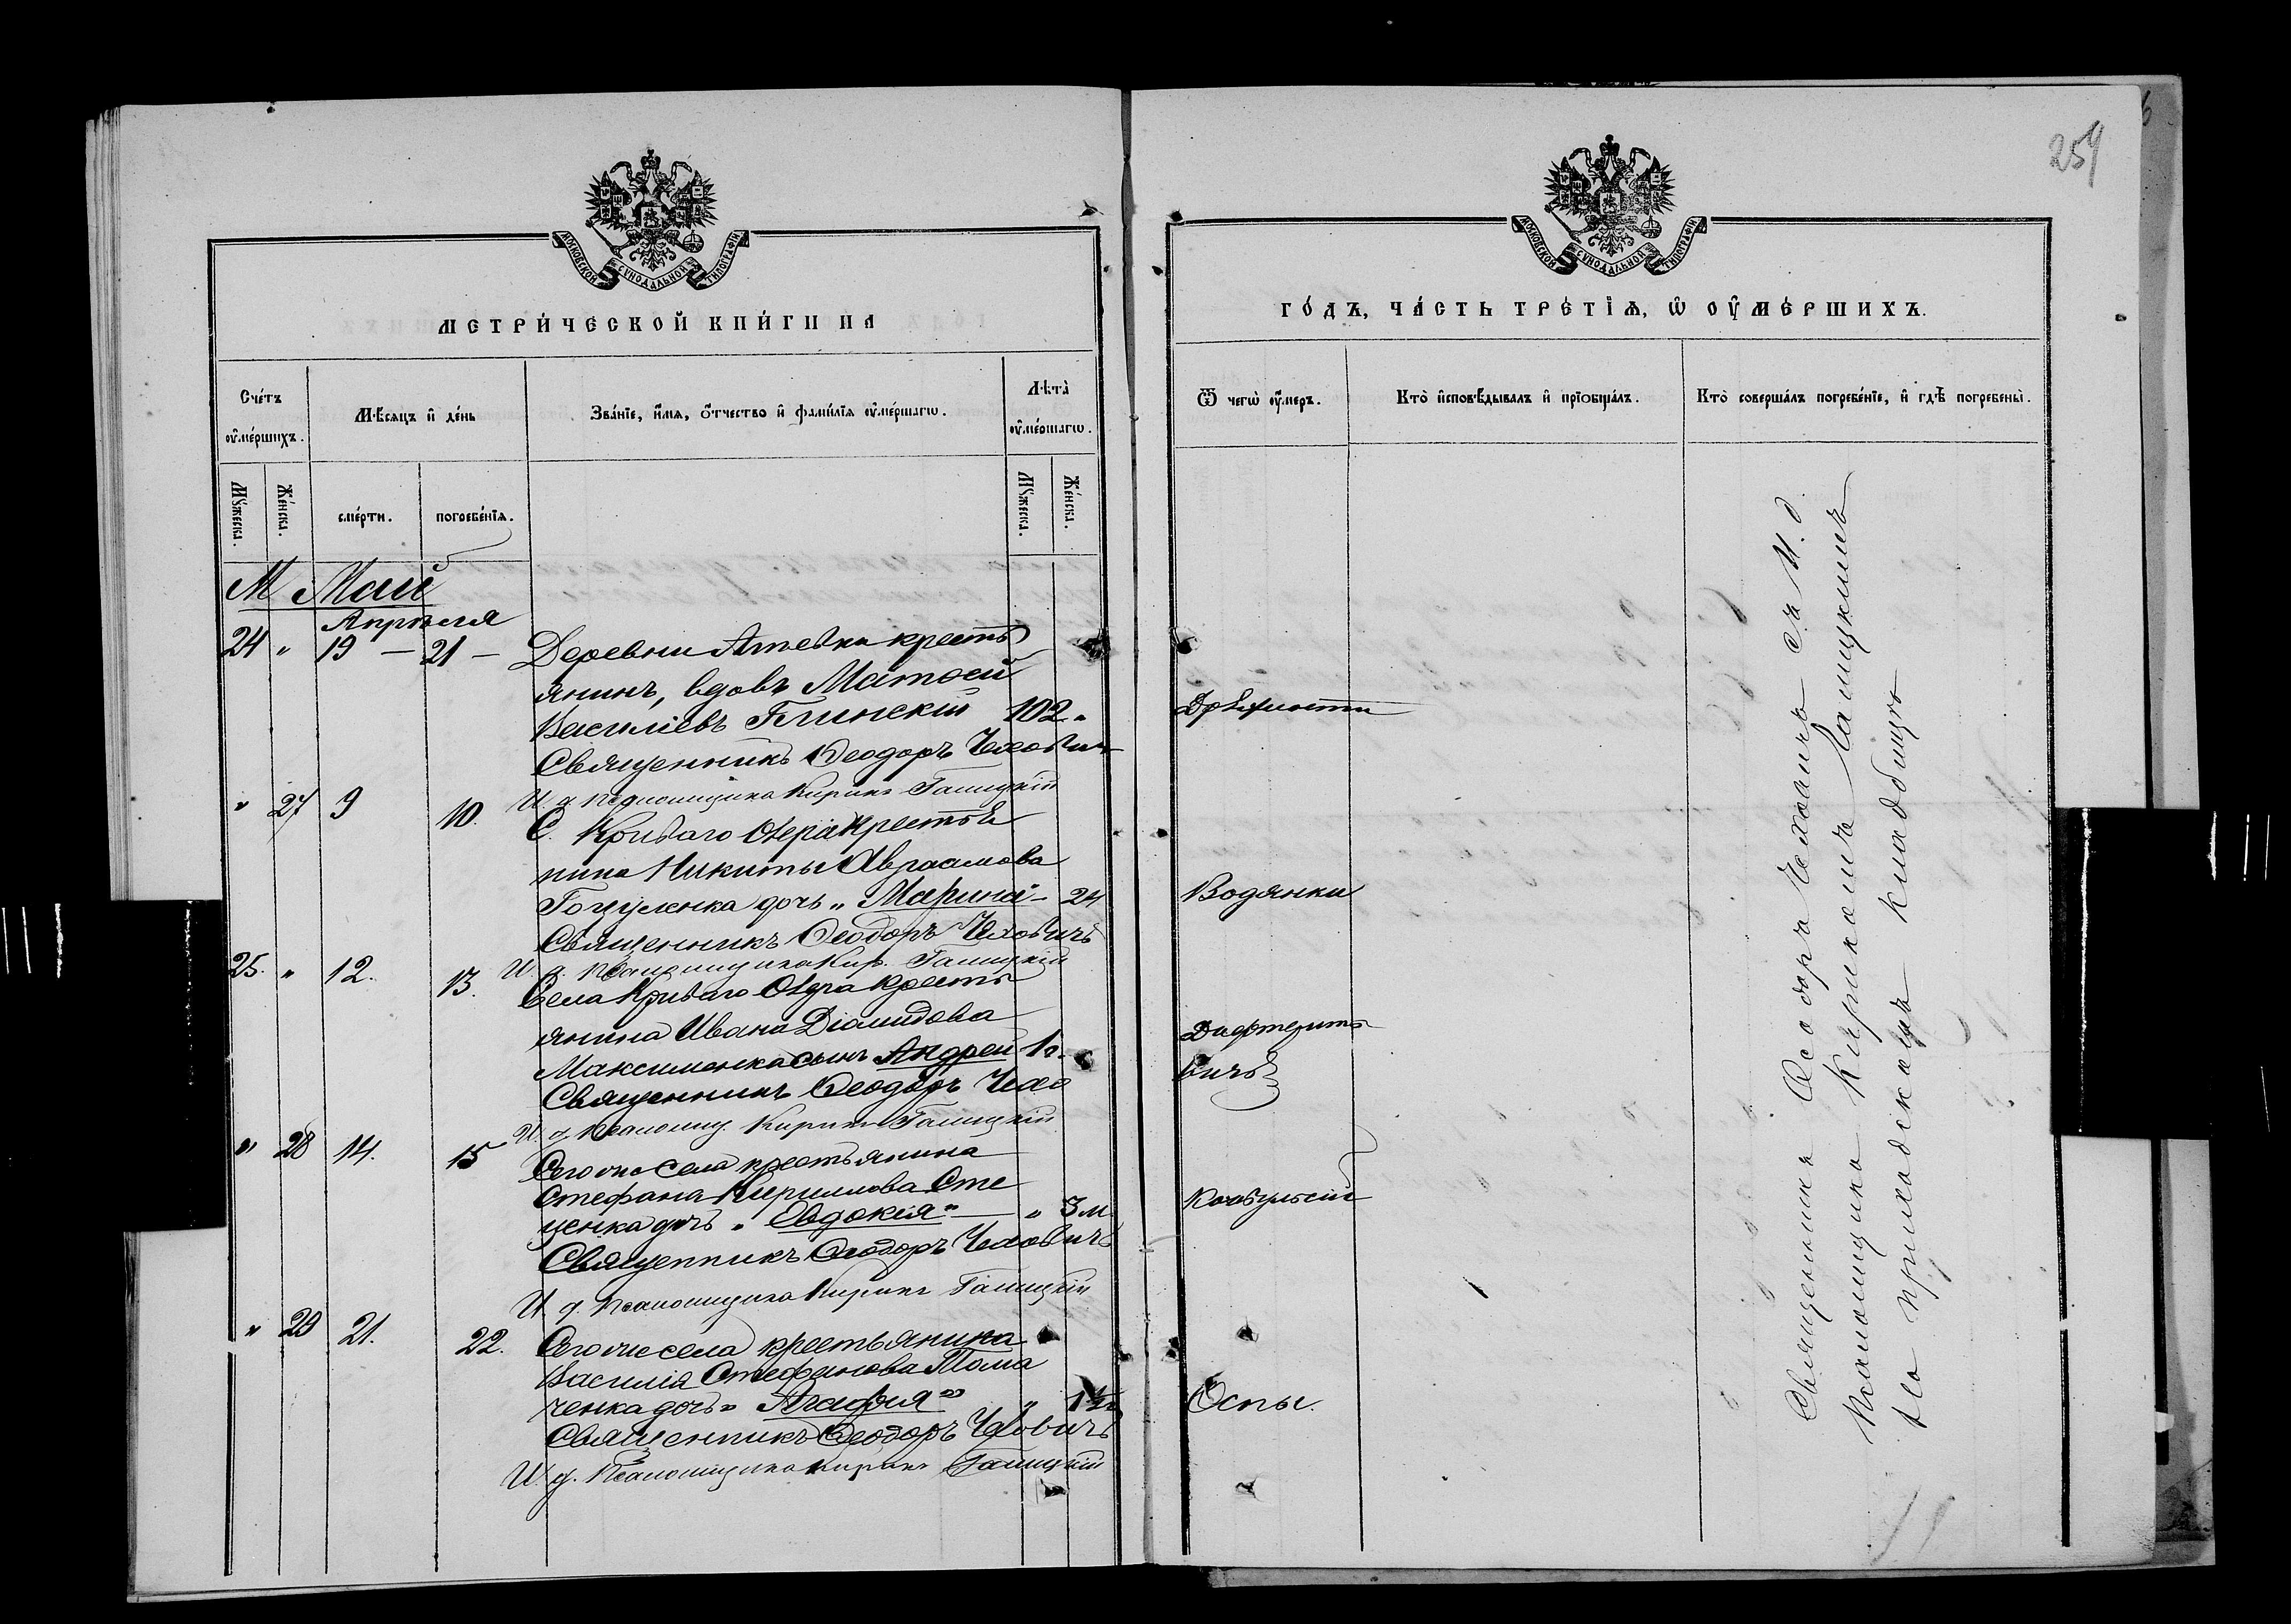 259
МОСКОВСКОЙ СѴНОДАЛЬНОЙ ТИПОГРАФІИ
МЕТРИ́ЧЕСКОЙ КНИ́ГИ НА
Сче́тъ ᲂу҆ме́ршихъ.
Мѣсяцъ и҆ де́нь
Зва́нїе, и҆́мя, ѻ҆́тчество и҆ фами́лїя ᲂу҆ме́ршагѡ.
Лѣта̀ ᲂу҆ме́ршагѡ.
Мꙋ́жеска.
Же́нска.
сме́рти.
погребе́нїя.
Мꙋ́жеска.
Же́нска.
М Май
Апрѣля
24 " 19 — 21 — Деревни кресть
янинъ, вдовъ Матѳей
Василіевъ Глинскій 102 "
Священникъ Ѳеодоръ Чехович
И. д. псаломщика Кирикъ Галицкій
" 27 9 10. С. Криваго Озера крестья
нина Никиты Авраамова
Гоцуленка дочь „Марина" — 24
Священникъ Ѳеодоръ Чеховичъ
И. д. псаломщика Кир. Галицкій
25. " 12. 13. Села Криваго Озера кресть
янина Ивана Діомидова
Максименка сынъ Андрей 1 г.
Священникъ Ѳеодоръ Чехо
И. д. псаломщ. Кирикъ Галицкій
" 28 14. 15 Того же села крестьянина
Стефана Кириллова Сте
ценка дочь „Евдокія" — " 3 м.
Священникъ Ѳеодоръ Чеховичъ
И. д. псаломщика Кирикъ Галицкій
" 29 21. 22. Того же села крестьянина
Василія Стефанова
ченка дочь „Агафія" " 1½
Священникъ Ѳеодоръ Чеховичъ
И. д. Псаломщика Кирикъ Галицкій
МОСКОВСКОЙ СѴНОДАЛЬНОЙ ТИПОГРАФІИ
ГО́ДЪ, ЧА́СТЬ ТРЕ́ТІѦ, Ѡ҆ ОУ҆МЕ́РШИХЪ.
Ѿ чегѡ̀ ᲂу҆́меръ.
Кто̀ и҆сповѣ́дывалъ и҆ прїѡбща́лъ.
Кто̀ соверша́лъ погребе́нїе, и҆ гдѣ̀ погребены̀.
Дряхлости
Водянки
Дифтерита
вичъ
Коньульсій
Оспы.
Священникъ Ѳеодоръ Чеховичъ съ И. д.
псаломщика Кирикомъ Галицкимъ
на приходскомъ кладбищѣ